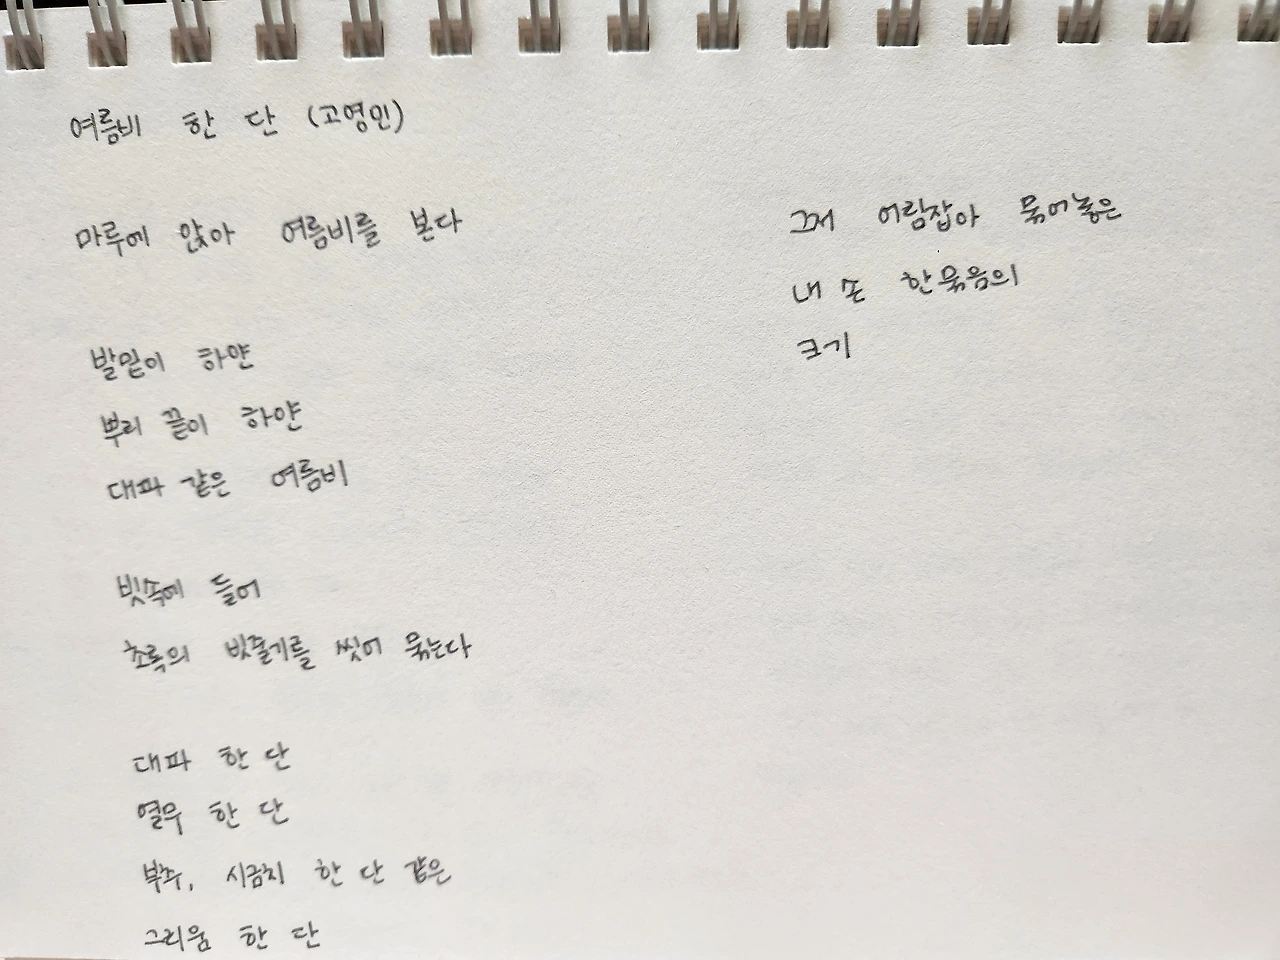 여름비 한 단 (고영민)
마루에 앉아 여름비를 본다
발밑이 하얀
뿌리 끝이 하얀
대파 같은 여름비
빗속에 들어
초록의 빗줄기를 씻어 묶는다
대파 한 단
열무 한 단
부추, 시금치 한 단 같은
그리움 한 단
그저 어림잡아 묶어놓은
내 손 한묶음의
크기